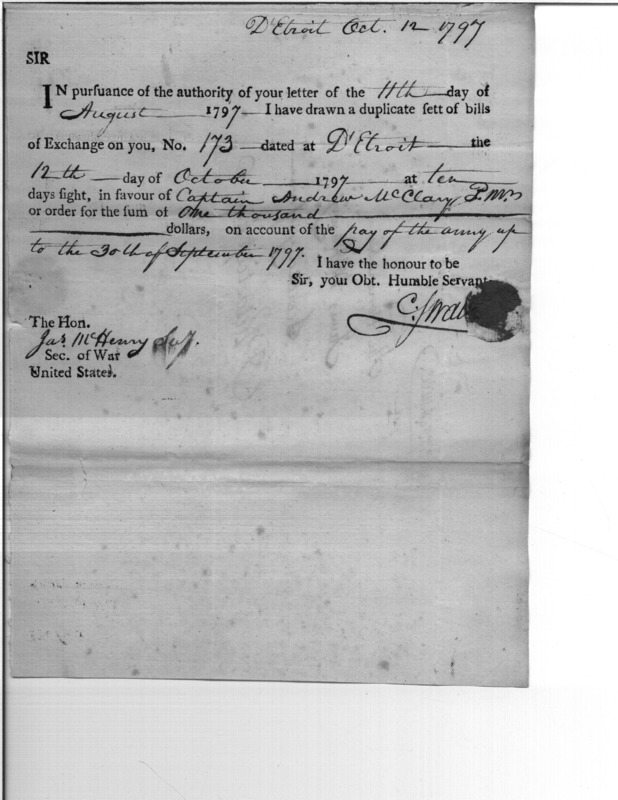 D'Etroit Oct. 12 1797
SIR
IN pursuance of the authority of your letter of the 11th day of
August 1797 I have drawn a duplicate sett of bills
of Exchange on you, No. 173 dated at D'Etroit the
12th day of October 1797 at ten
days sight, in favour of Captain Andrew McClary
or order for the sum of One thousand
dollars, on account of the pay of the army up
to the 30th of September 1797.
I have the honour to be
Sir, your Obt. Humble Servant
C. Swan
The Hon.
Jas McHenry
Sec. of War
United States.